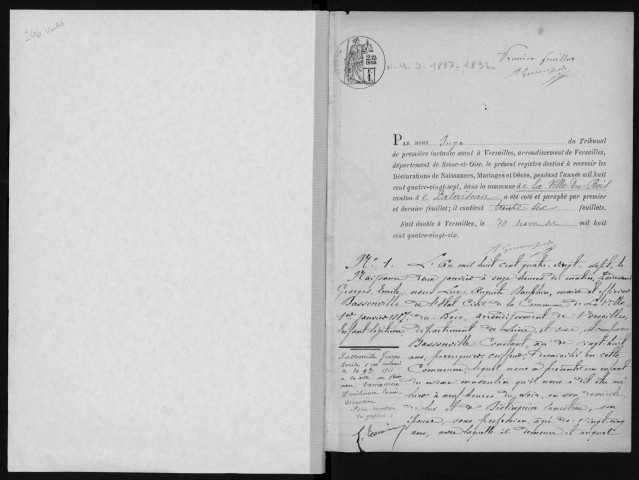 246 vues
N. M. D. 1887-1892
Premier feuillet
PAR NOUS Juge du Tribunal
de première instance séant à Versailles, arrondissement de Versailles,
département de Seine-et-Oise, le présent registre destiné à recevoir les
Déclarations de Naissances, Mariages et Décès, pendant l'année mil huit
cent quatre-vingt-sept, dans la commune de la Ville-du-Bois
canton de Palaiseau a été coté et paraphé par premier
et dernier feuillet; il contient trente six feuillets.
Fait double à Versailles, le 30 novembre mil huit
cent quatre-vingt-six.
N° 1.
Naissance
Georges Emile
Bassonville
1er janvier 1887
Enfant légitime
L'An mil huit cent quatre-vingt sept, le
deux janvier à onze heures du matin, Pardevant
nous Luc Auguste Dauphin, maire et officier
de l'Etat Civil de la Commune de La Ville
du-Bois, arrondissement de Versailles,
département de Seine et Oise, a comparu
Bassonville Constant, âgé de vingt huit
ans, perruquier coiffeur, domicilié en cette
Commune, lequel nous a présenté un enfant
du sexe masculin qu'il nous a dit être né
hier à neuf heures du soir, en son domicile
de lui et de
son
épouse, sans profession, âgée de vingt cinq
ans, avec laquelle il demeure et auquel
Bassonville Georges
Emile
Mention